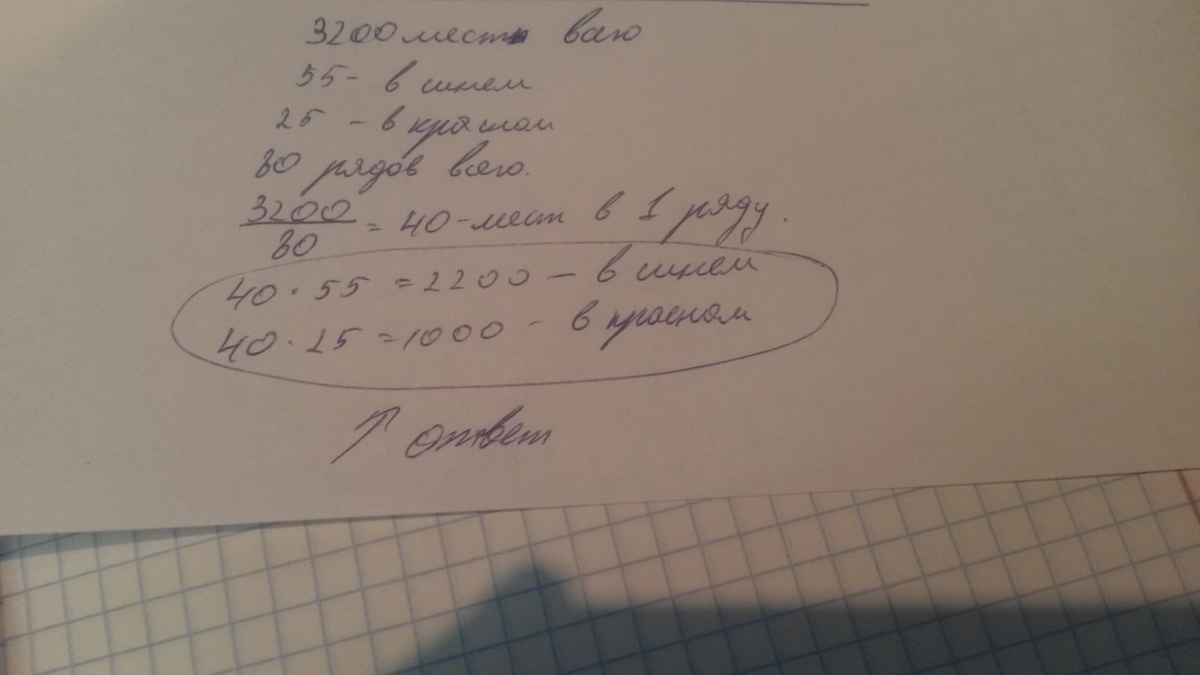 3200 мест всего
55 - в синем
25 - в красном
80 рядов всего.
3200/80 = 40 - мест в 1 ряду.
40 · 55 = 2200 — в синем
40 · 25 = 1000 - в красном
↑ ответ